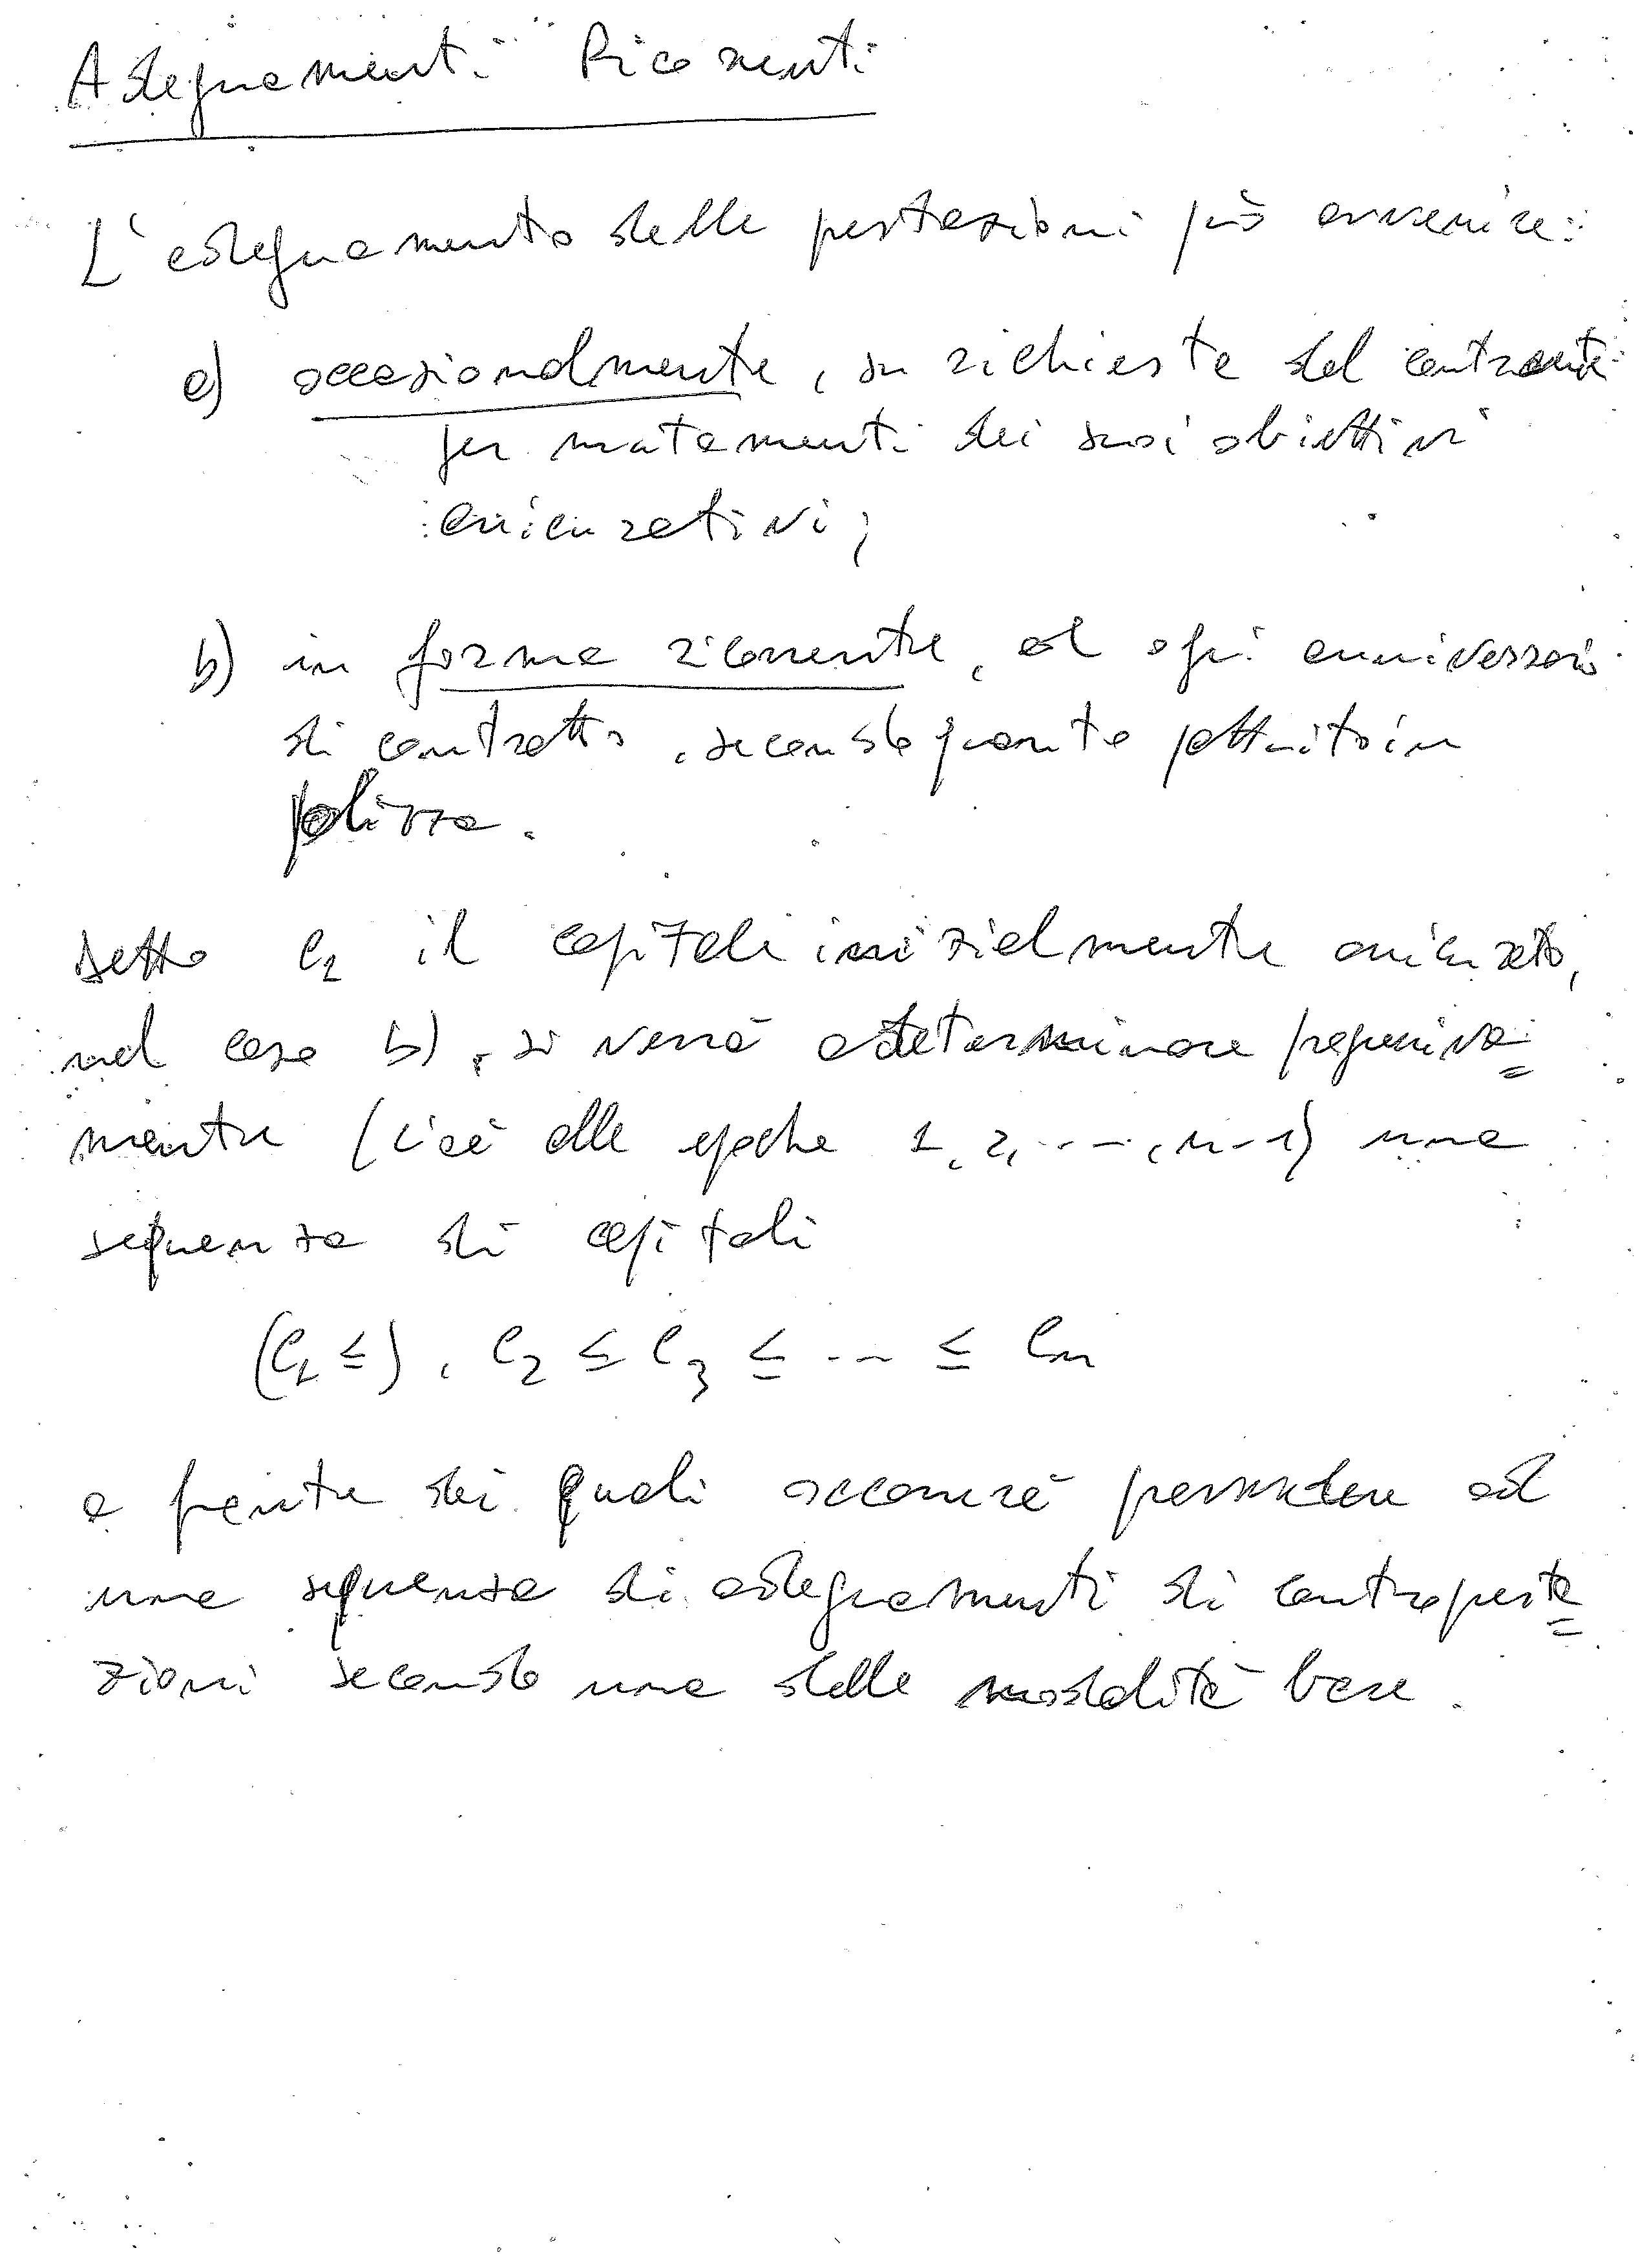 Adeguamenti Ricorrenti
L'adeguamento delle prestazioni può avvenire:
a) occasionalmente, su richiesta del contraente
per mutamenti dei suoi obiettivi
assicurativi;
b) in forma ricorrente, ad ogni anniversario
di contratto, secondo quanto pattuito in
polizza.
Detto C₁ il capitale inizialmente assicurato,
nel caso b), si verrà a determinare progressiva=
mente (cioè alle epoche 1, 2, ..., n-1) una
sequenza di capitali
(C₁ ≤), C₂ ≤ C₃ ≤ ... ≤ Cn
a fronte dei quali occorrerà provvedere ad
una sequenza di adeguamenti di contropresta=
zioni secondo una delle modalità base.